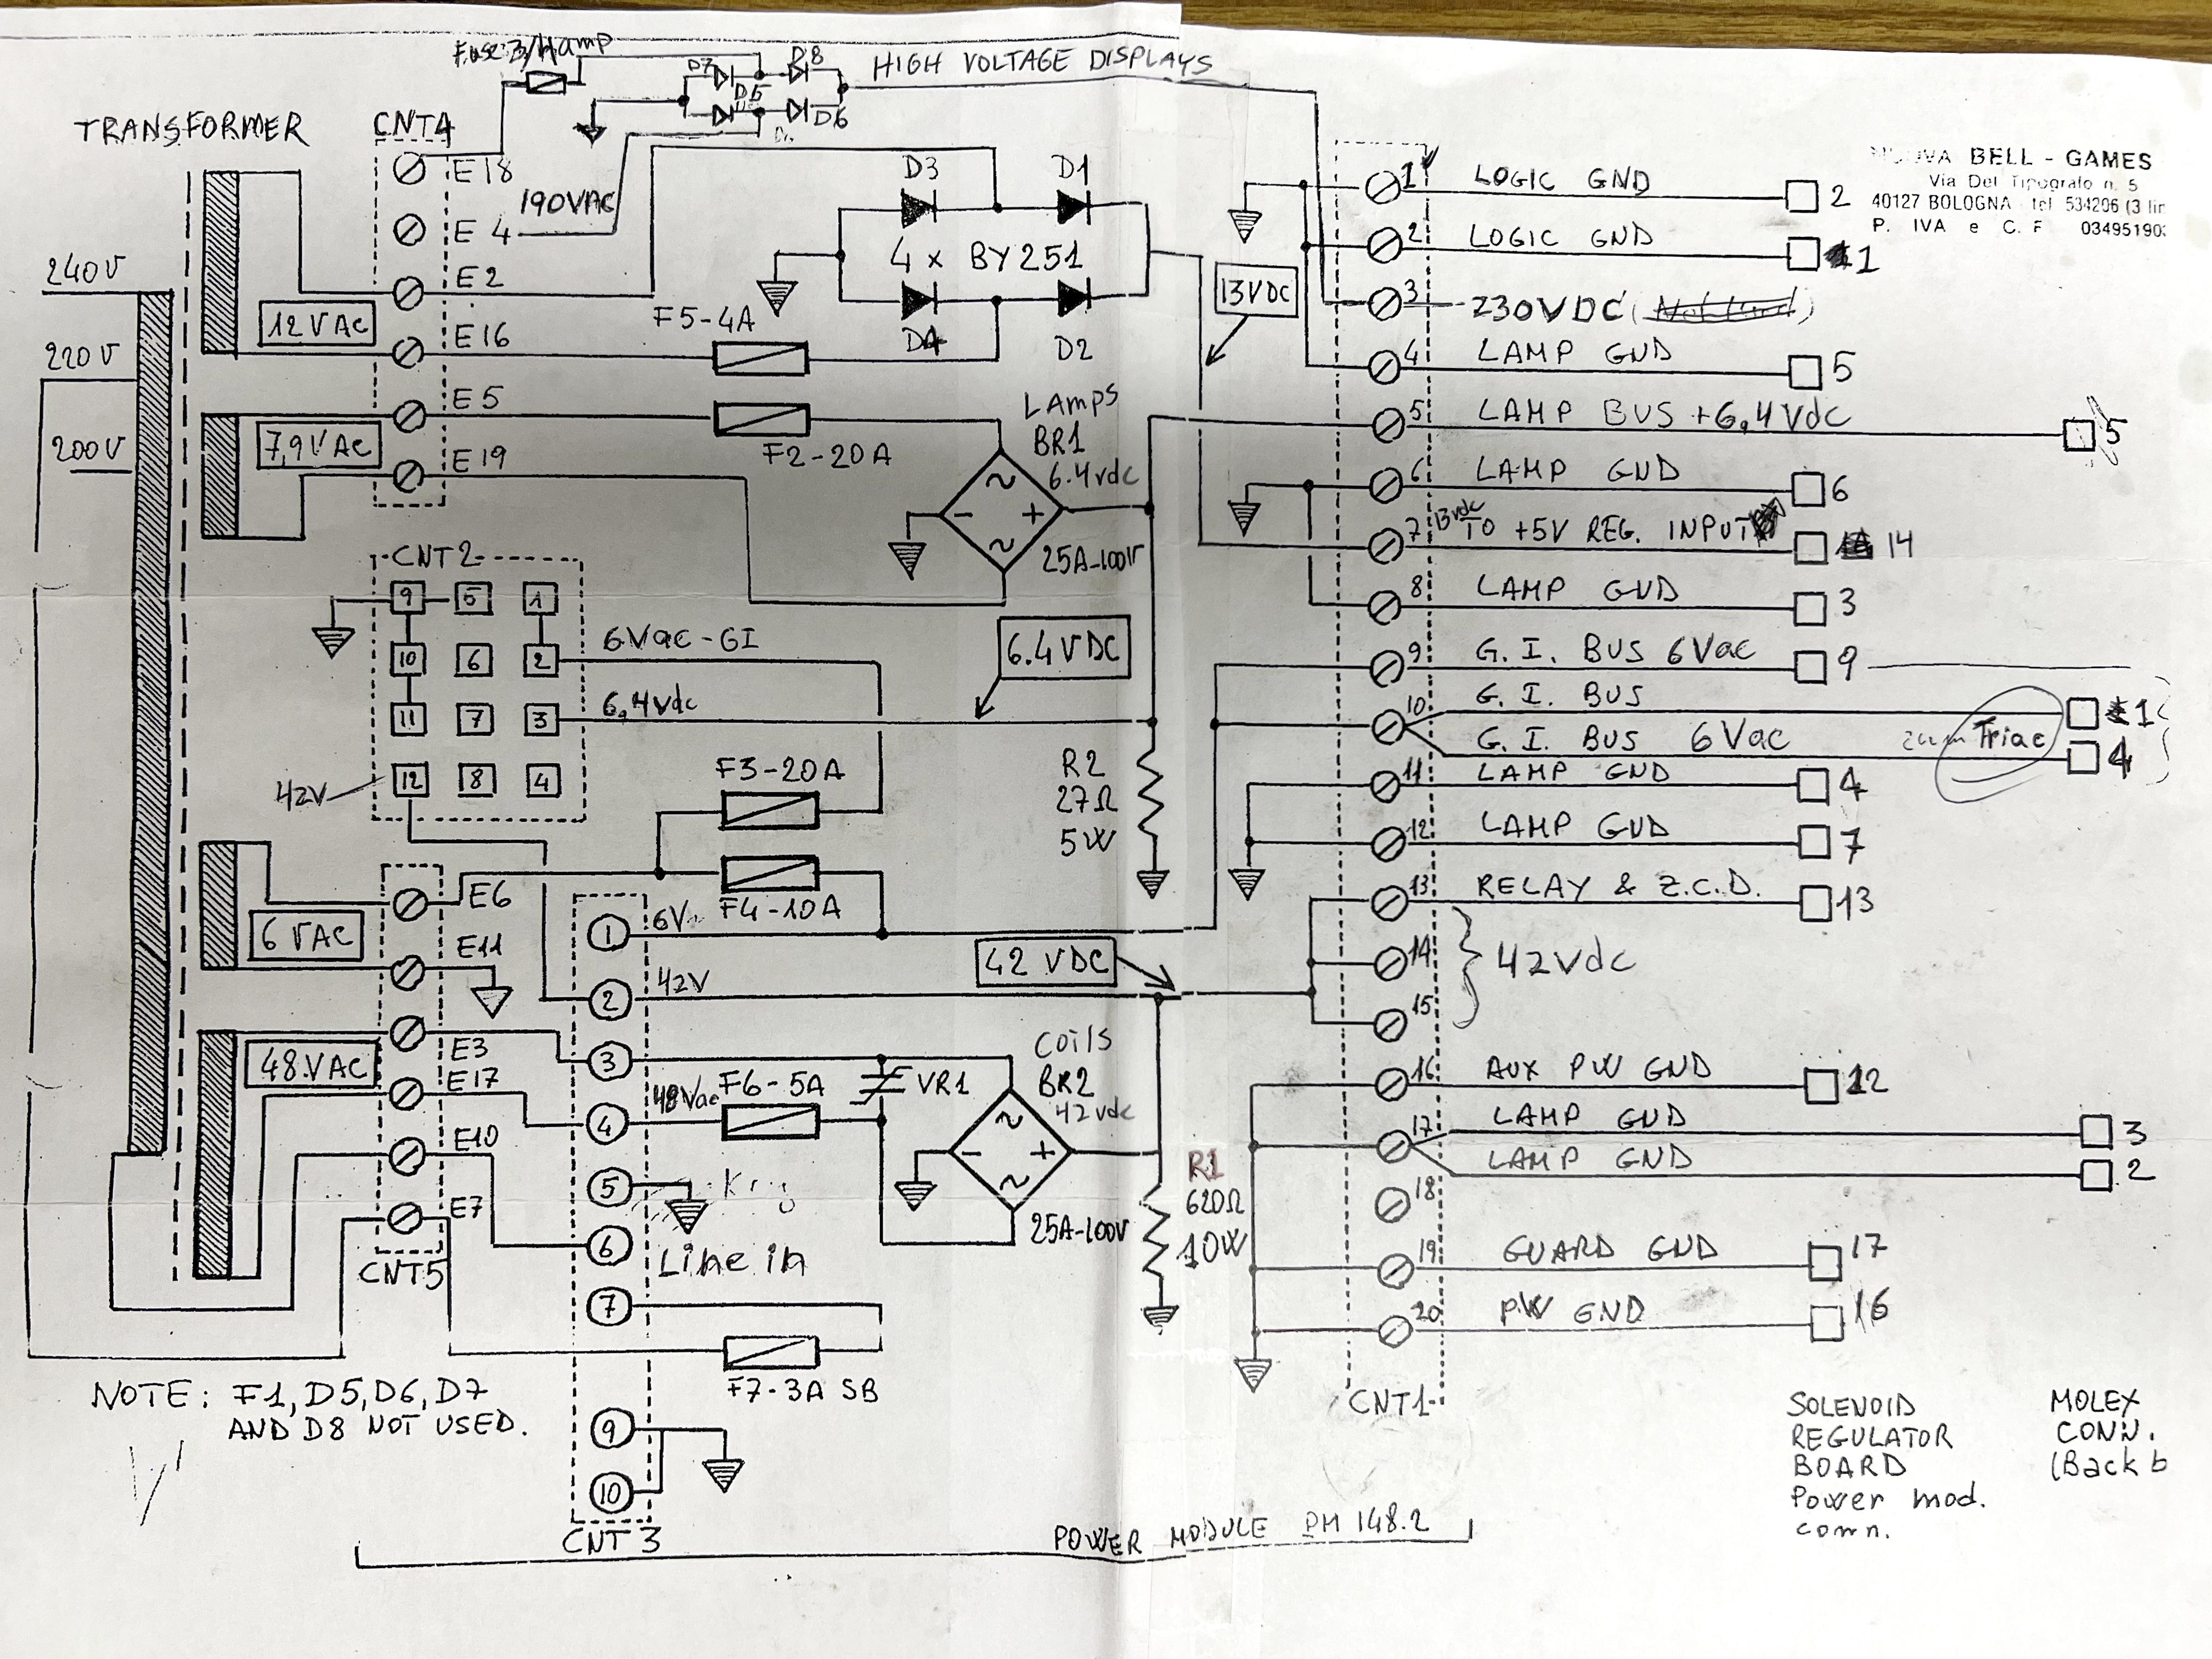 Fuse 3/4 amp
D7
D8
HIGH VOLTAGE DISPLAYS
D5
D6
TRANSFORMER
CNT4
E18
190VAC
E 4
E2
E16
E 5
E19
240V
220V
200V
12VAC
7,9VAC
D3
D1
4 x BY251
D4
D2
F5-4A
13VDC
F2-20A
LAmps
BR1
6.4vdc
~
-
+
~
25A-100V
CNT2
9
5
1
10
6
2
11
7
3
12
8
4
6Vac-GI
6,4Vdc
6.4VDC
42V
F3-20A
F4-10A
R2
27Ω
5W
6VAC
E6
E11
1
6V~
2
42V
42 VDC
48VAC
E3
E17
E10
E7
CNT5
3
4
48Vac
F6-5A
VR1
COils
BR2
42vdc
~
-
+
~
25A-100V
R1
620Ω
10W
5
6
Line in
7
F7-3A SB
9
10
CNT 3
NOTE: F1, D5, D6, D7
AND D8 NOT USED.
POWER MODULE PM 148.2
BELL - GAMES
Via Del Tipografo n. 5
40127 BOLOGNA tel 534206 (3 lin
P. IVA e C. F 03495190
1 LOGIC GND 2
2 LOGIC GND 1
3 230VDC
4 LAMP GND 5
5 LAMP BUS +6,4Vdc 5
6 LAMP GND 6
7 13vdc TO +5V REG. INPUT 14
8 LAMP GND 3
9 G. I. BUS 6Vac 9
10 G. I. BUS 1
G. I. BUS 6Vac zum Triac 4
11 LAMP GND 4
12 LAMP GND 7
13 RELAY & Z.C.D. 13
14 42Vdc
15
16 AUX PW GND 12
17 LAMP GND 3
LAMP GND 2
18
19 GUARD GND 17
20 PW GND 16
CNT1
SOLENOID
REGULATOR
BOARD
Power mod.
conn.
MOLEX
CONN.
(Back b